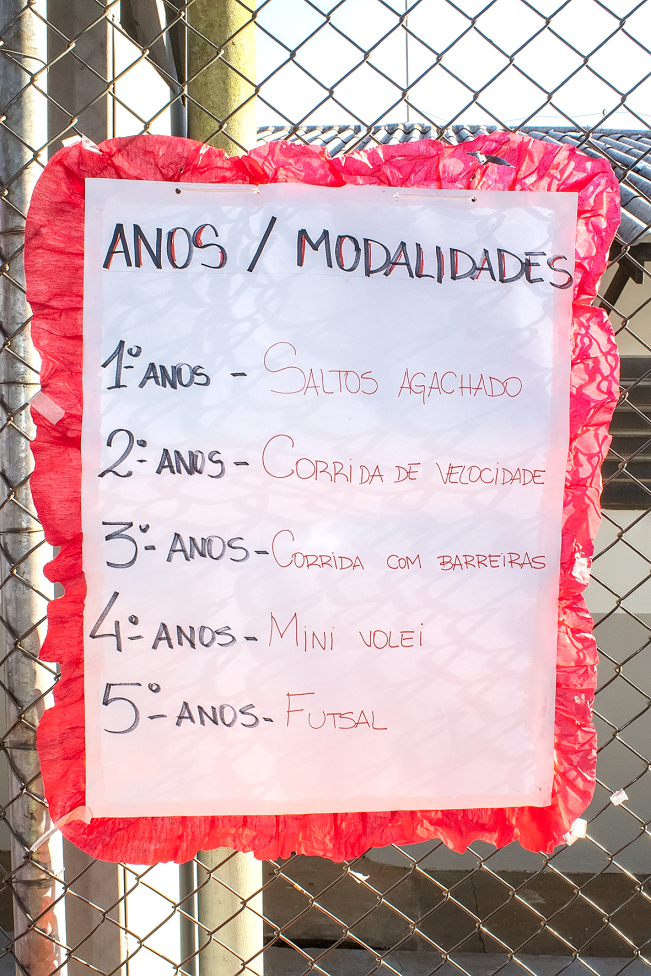 ANOS / MODALIDADES
1º ANOS - SALTOS AGACHADO
2º ANOS - CORRIDA DE VELOCIDADE
3º ANOS - CORRIDA COM BARREIRAS
4º ANOS - MINI VOLEI
5º ANOS - FUTSAL